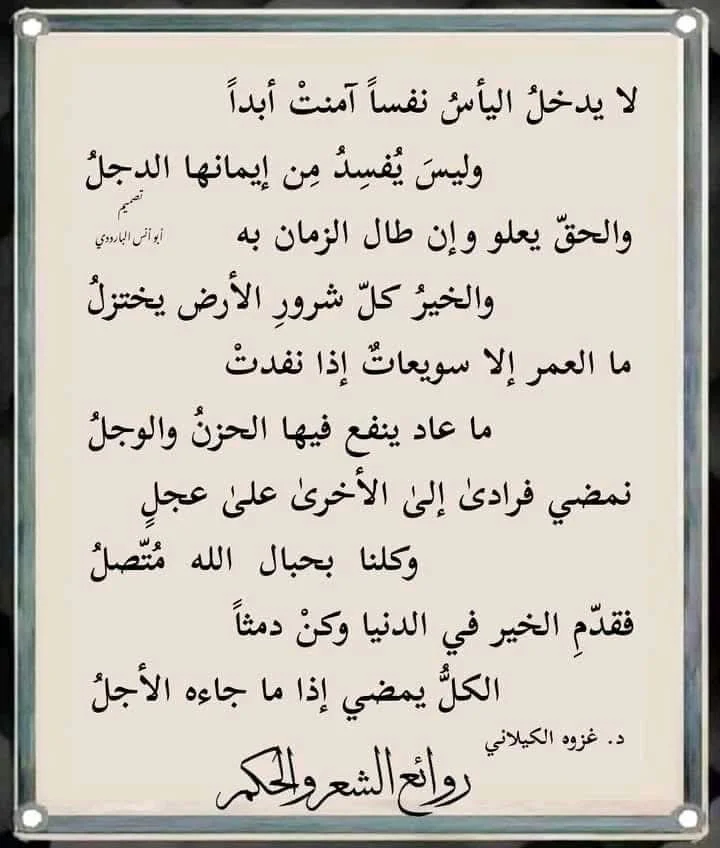 لا يدخلُ اليأسُ نفساً آمنتْ أبداً
وليسَ يُفسِدُ مِن إيمانها الدجلُ
تصميم
أبو أنس البارودي
والحقّ يعلو وإن طال الزمان به
والخيرُ كلّ شرورِ الأرض يختزلُ
ما العمر إلا سويعاتٌ إذا نفدتْ
ما عاد ينفع فيها الحزنُ والوجلُ
نمضي فرادىٰ إلىٰ الأخرىٰ علىٰ عجلٍ
وكلنا بحبال الله مُتّصلُ
فقدّمِ الخير في الدنيا وكنْ دمثاً
الكلُّ يمضي إذا ما جاءه الأجلُ
د. غزوه الكيلاني
روائع الشعر والحكم